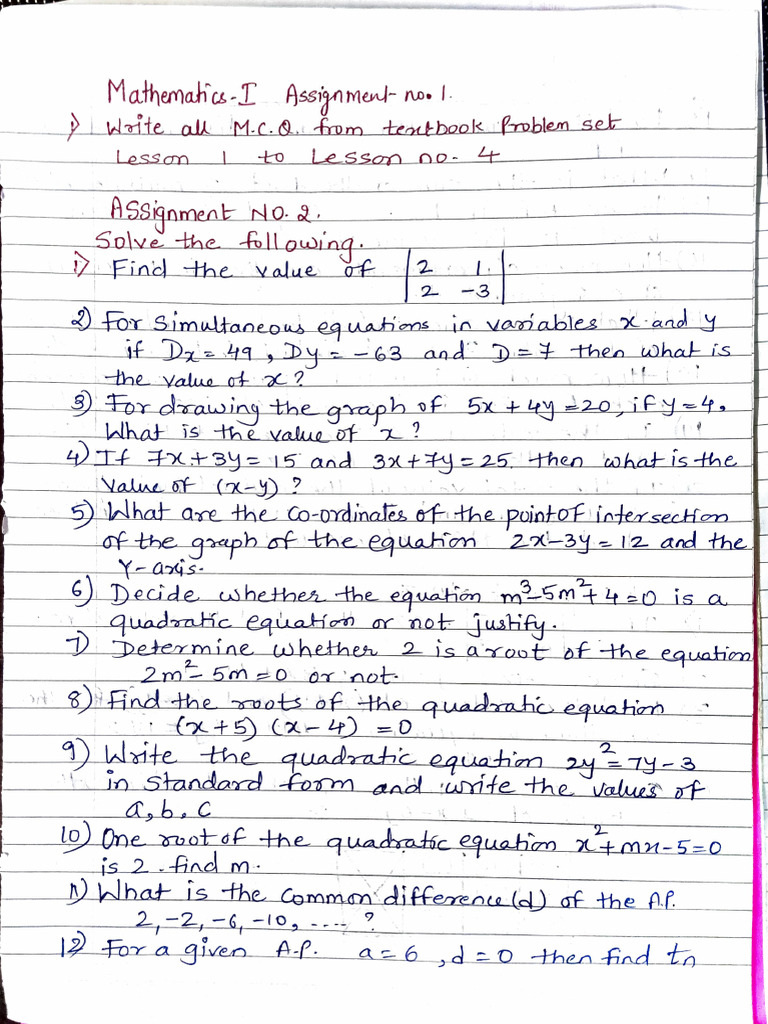 Mathematics-I Assignment no. 1.
1) Write all M.C.Q. from textbook Problem set
Lesson 1 to Lesson no. 4
Assignment No. 2.
Solve the following.
1) Find the value of |2 1|
|2 -3|
2) For simultaneous equations in variables x and y
if Dx = 49, Dy = -63 and D = 7 then what is
the value of x?
3) For drawing the graph of 5x + 4y = 20, if y = 4,
What is the value of x?
4) If 7x + 3y = 15 and 3x + 7y = 25. then what is the
value of (x-y)?
5) What are the co-ordinates of the point of intersection
of the graph of the equation 2x - 3y = 12 and the
Y-axis.
6) Decide whether the equation m³ - 5m² + 4 = 0 is a
quadratic equation or not justify.
7) Determine whether 2 is a root of the equation
2m² - 5m = 0 or not.
8) Find the roots of the quadratic equation
(x + 5) (x - 4) = 0
9) Write the quadratic equation 2y² = 7y - 3
in standard form and write the values of
a, b, c
10) One root of the quadratic equation x² + mx - 5 = 0
is 2. find m.
11) What is the common difference (d) of the A.P.
2, -2, -6, -10, .... ?
12) For a given A.P. a = 6, d = 0 then find tn